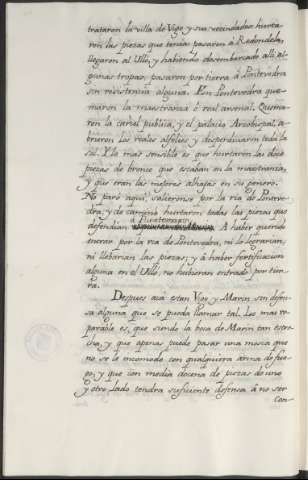 trataron la villa de Vigo y sus vecindades hurta-
ron las piezas que tenian pasaron à Redondela,
llegaron al Ullò, y habiendo desembarcado alli al-
gunas tropas pasaron por tierra à Pontevedra
sin resistencia alguna. En Pontevedra que-
maron la maestranza ò real arsenal. Quema-
ron la carcel publica, y el palacio Arzobispal, a-
brieron los reales alfolies y desperdiciaron toda la
sal. Y lo mas sensible es que hurtaron las doce
piezas de bronce que estaban en la maestranza,
y que eran las mejores alhajas en su genero.
No paró aqui, salieronse por la ria de Ponteve-
dra, y de camino hurtaron todas las piezas que
à Placeres
defendian A haber querido
entrar por la ria de Pontevedra, ni lo lograrian,
ni llebarian las piezas, y à haber fortificacion
alguna en el Ullò, no hubieran entrado por tier-
ra.
Despues acà estan Vigo y Marin sin defen-
sa alguna que se pueda llamar tal. Lo mas re-
parable es, que siendo la boca de Marin tan estre-
cha, y que apenas puede pasar una mosca que
no se le encomode con qualquiera arma de fue-
go, y que con media docena de piezas de uno
y otro lado tendra suficiente defensa à no ser
con-